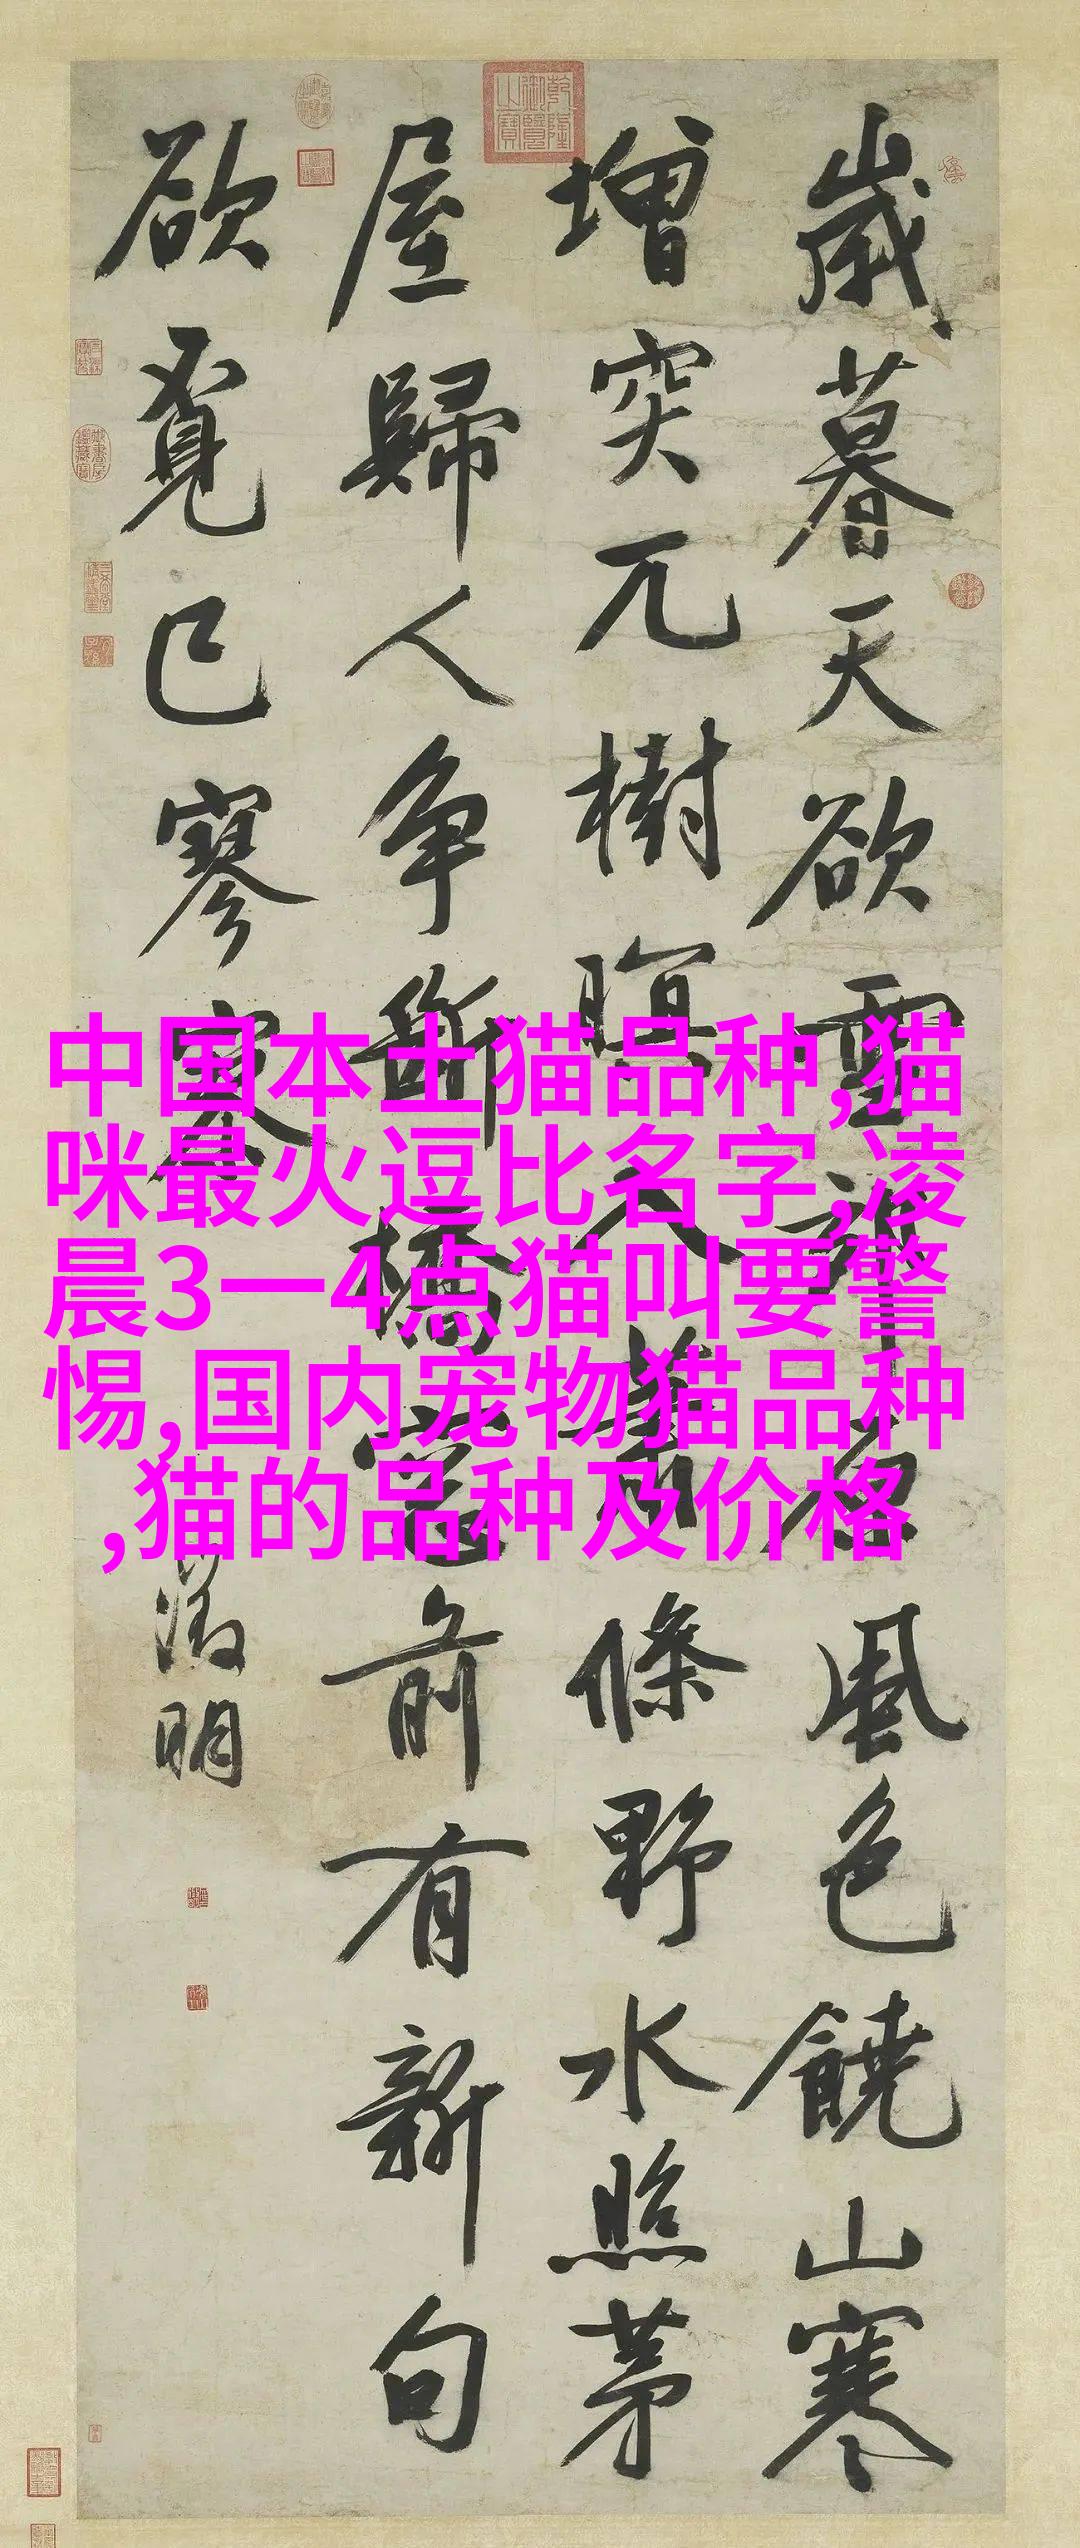 乾隆御覽之寶
歲暮天欲雪風色饒山寒
增突兀樹暝入蕭條野水照茅
屋歸人爭斷橋窓前有新句
欲覓已寥寥
徵明
中国本土猫品种,猫
咪最火逗比名字,凌
晨3一4点猫叫要警
惕,国内宠物猫品种
,猫的品种及价格